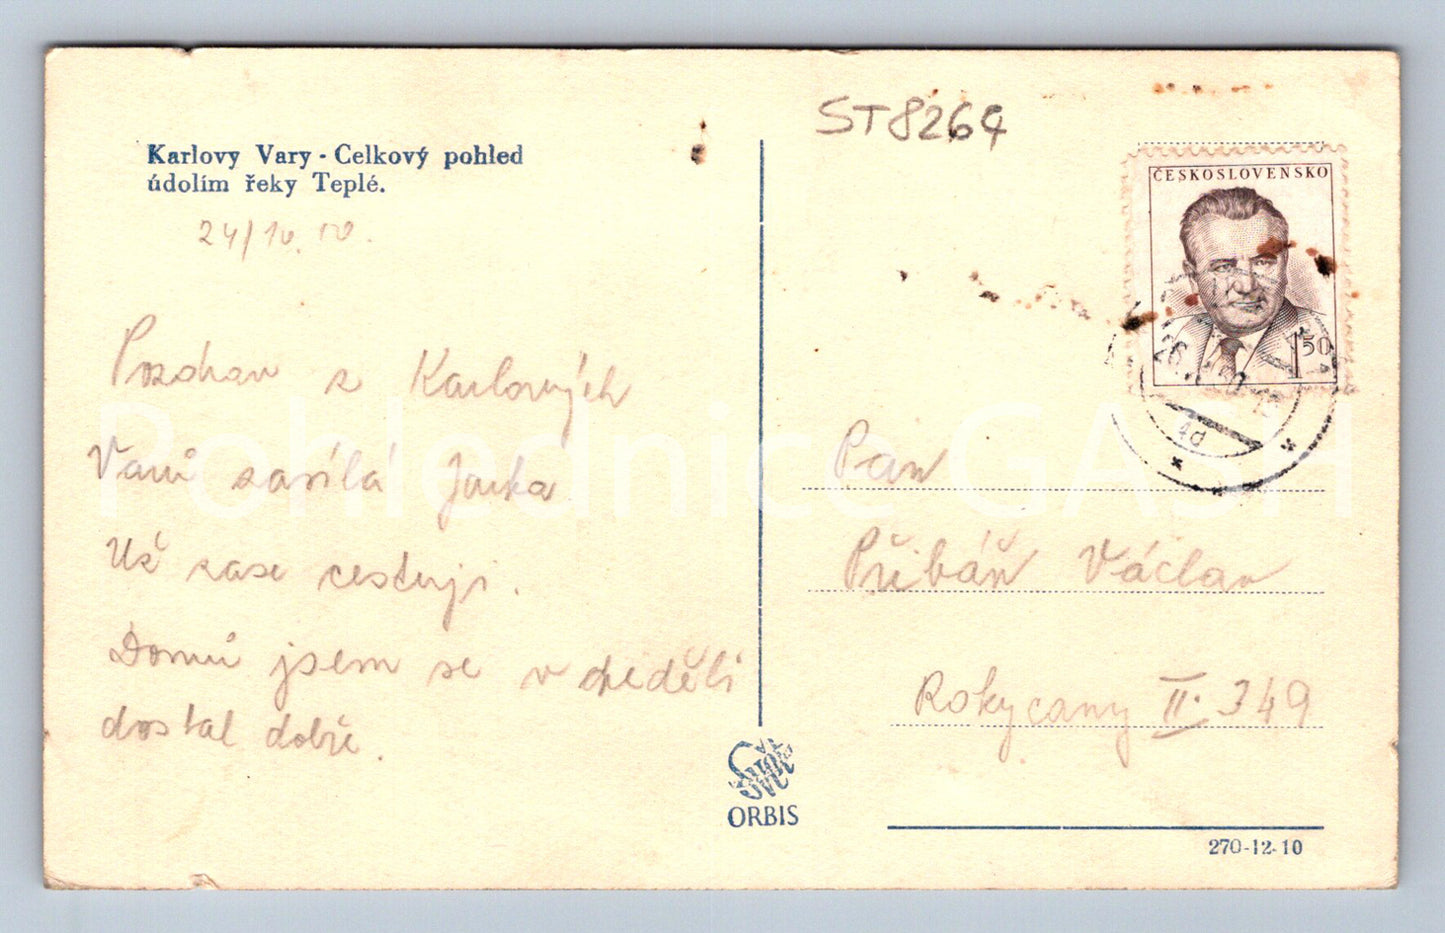 ST8264
Karlovy Vary - Celkový pohled
údolím řeky Teplé.
24/10.
Pozdrav z Karlových
Varů zasílá Jarka
Už zase cestuji.
Domů jsem se v neděli
dostal dobře.
ORBIS
ČESKOSLOVENSKO
1 50
Pan
Přibáň Václav
Rokycany II. 349
270-12-10
Pohlednice GASH